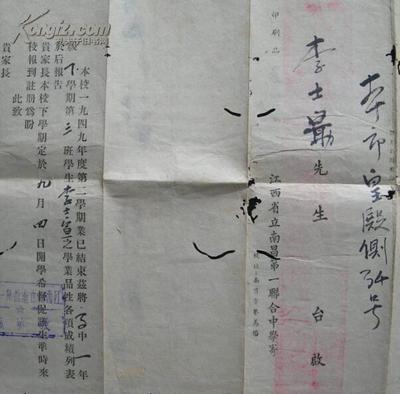 本市皇殿側34号
李士最先生 台啟
印刷品
江西省立南昌第一聯合中學寄
本校一九四九年度第二學期業已結束茲將高中一年
級下學期第三班學生李士宣之學業品性各項成績列表
於后報告
貴家長本校下學期定於九月四日開學希督促該生準時來
校報到註册為盼
此致
貴家長